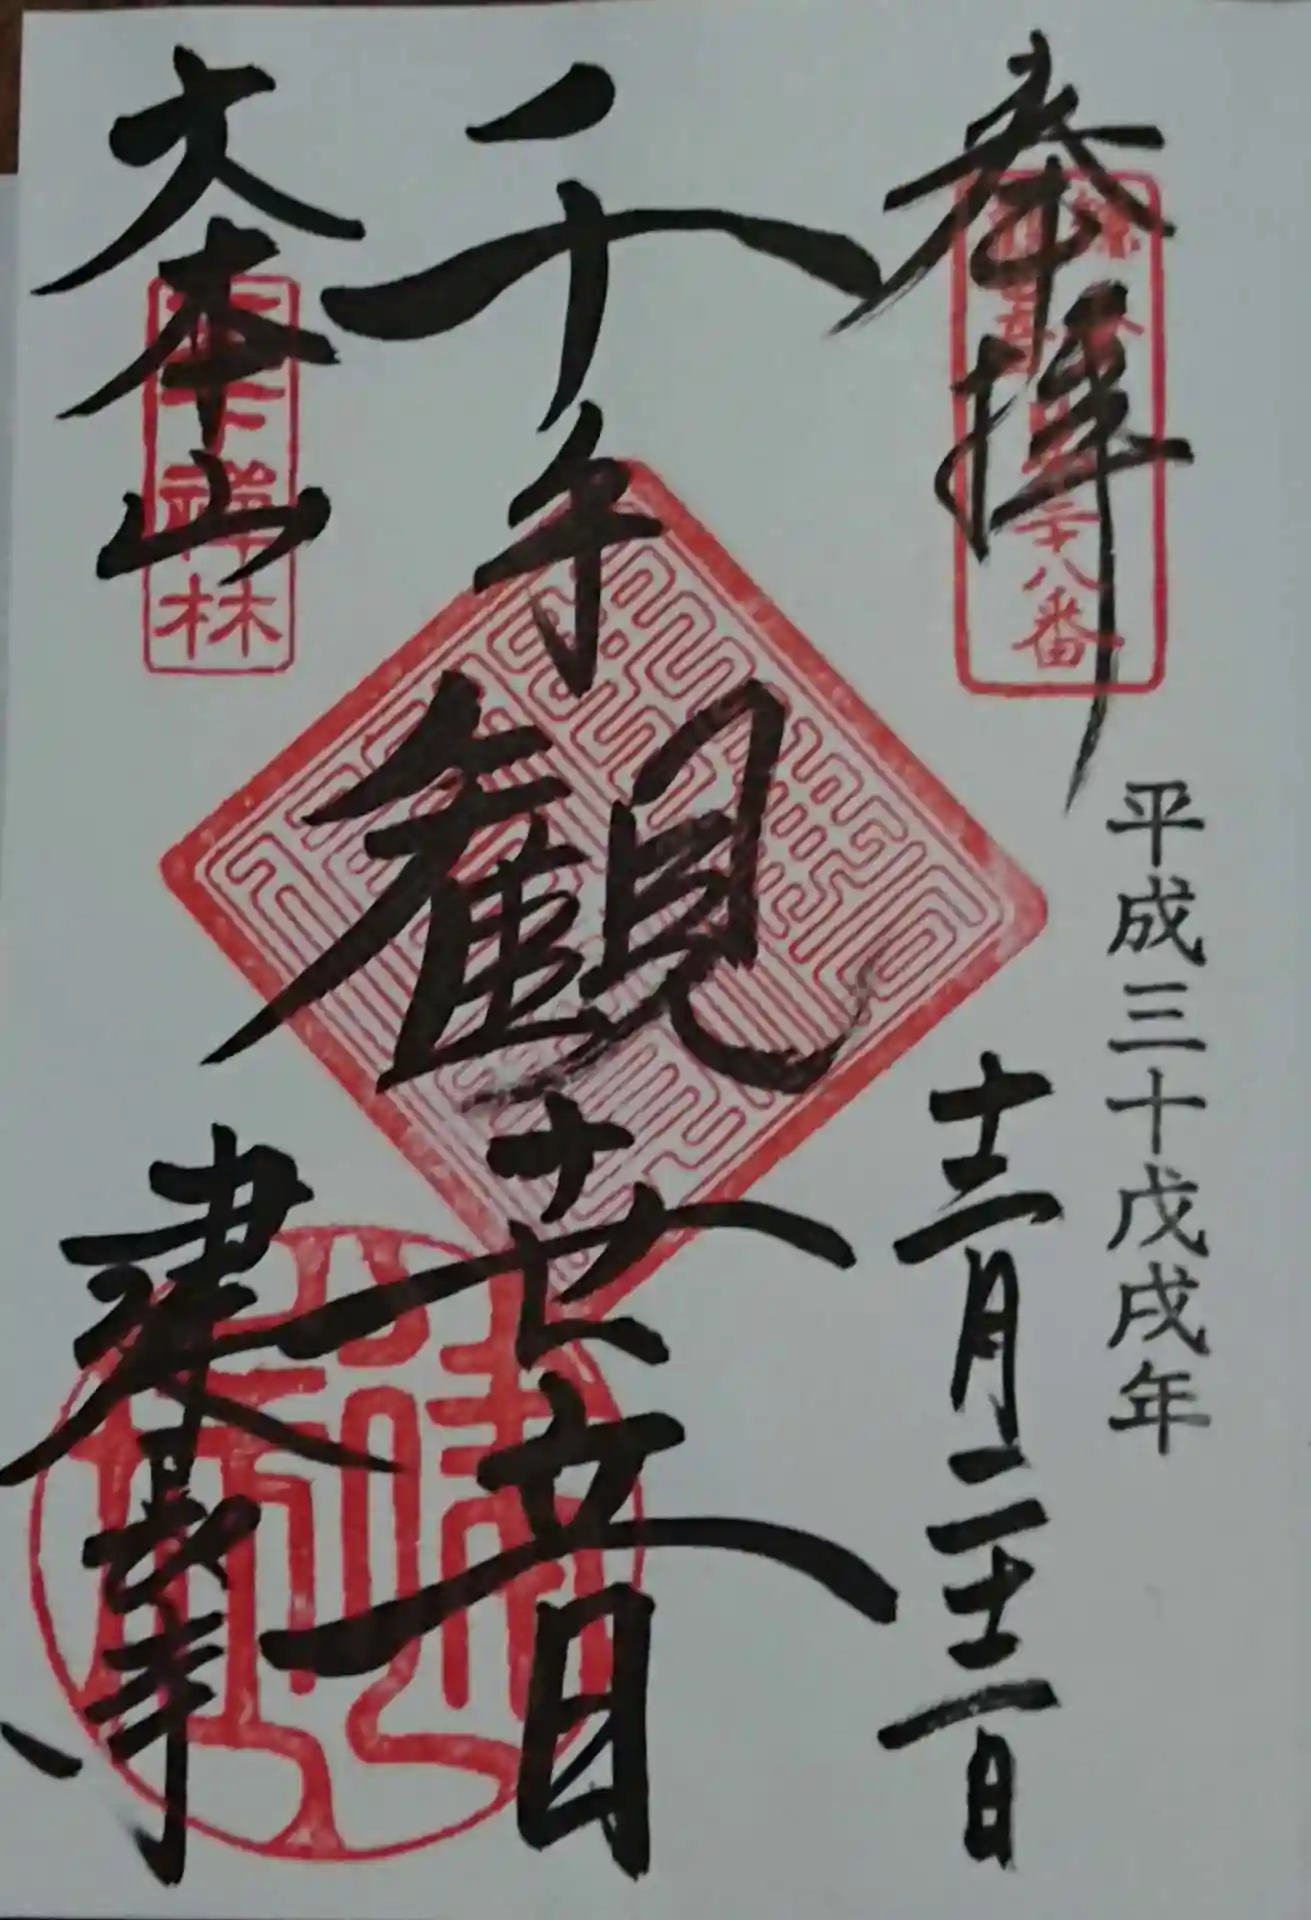 奉拝
二十八番
平成三十戊戌年
十二月二十二日
千手観世音
大本山
建長寺
天下禅林